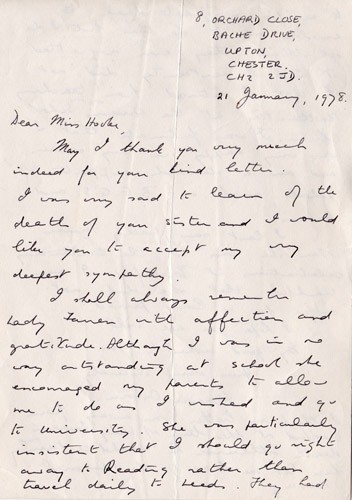 8, ORCHARD CLOSE,
BACHE DRIVE,
UPTON,
CHESTER.
CH2 2JD.
21 January, 1978.
Dear Miss Hooke,
May I thank you very much
indeed for your kind letter.
I was very sad to learn of the
death of your sister and I would
like you to accept my very
deepest sympathy.
I shall always remember
Lady with affection and
gratitude. Although I was in no
way outstanding at school she
encouraged my parents to allow
me to do as I wished and go
to University. She was particularly
insistent that I should go right
away to Reading rather than
travel daily to Leeds. They had